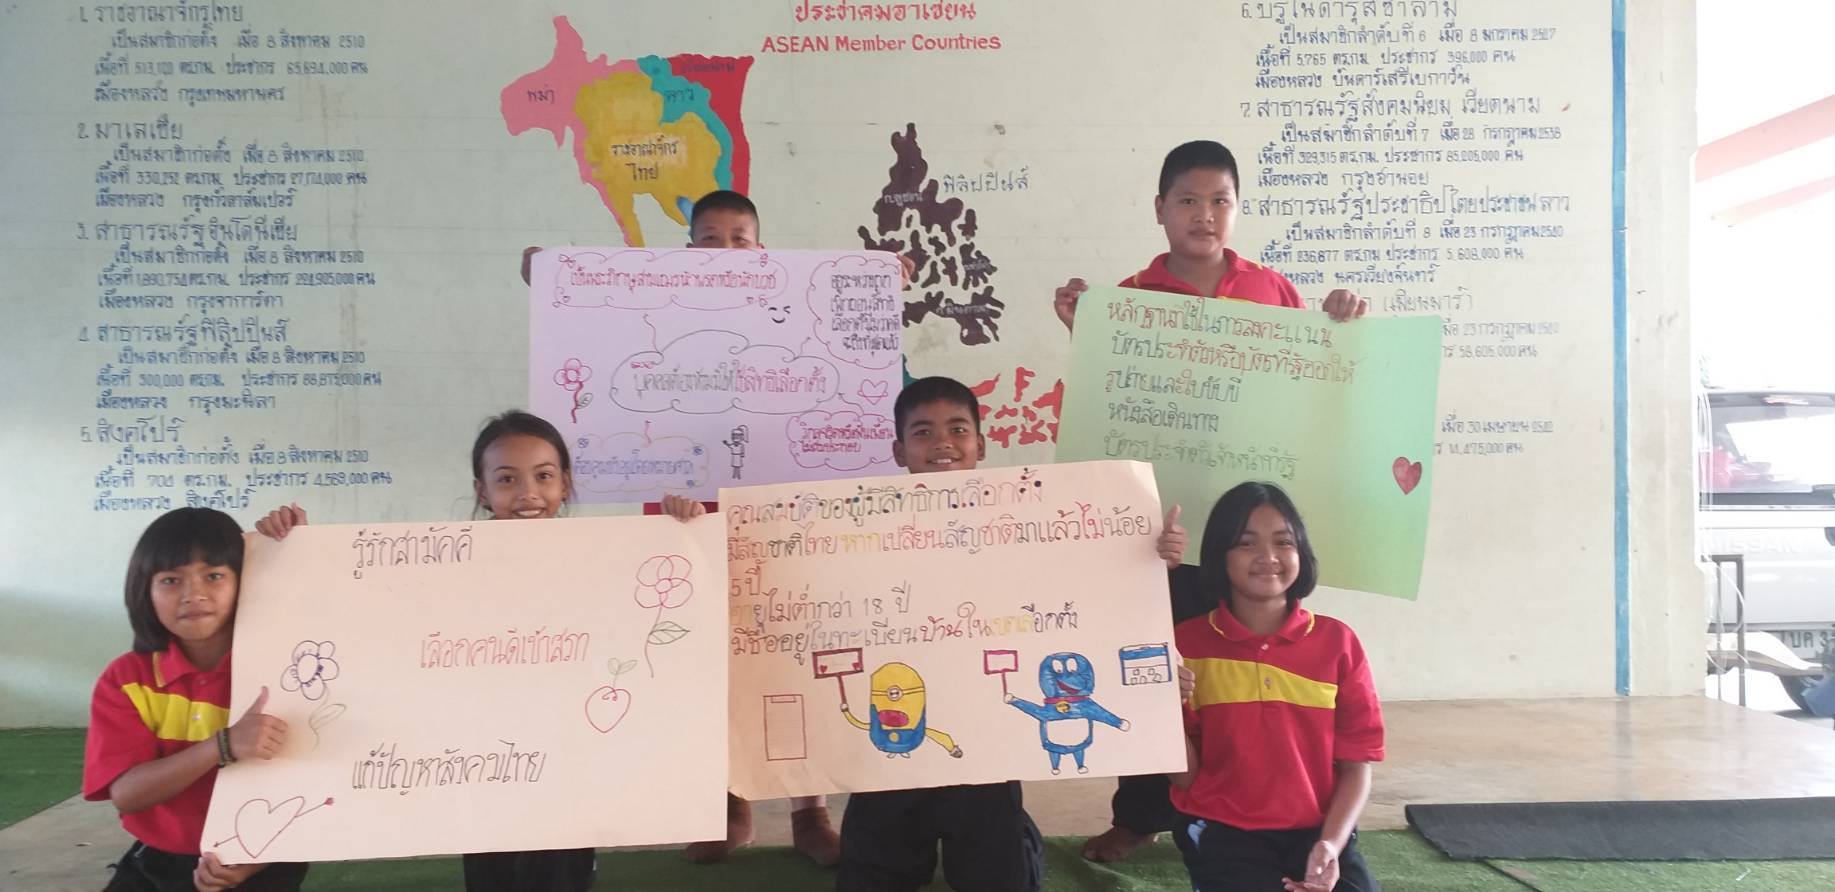 1. ราชอาณาจักรไทย
เป็นสมาชิกก่อตั้ง เมื่อ 8 สิงหาคม 2510
เนื้อที่ 513,120 ตร.กม. ประชากร 65,694,000 คน
เมืองหลวง กรุงเทพมหานคร
2. มาเลเซีย
เป็นสมาชิกก่อตั้ง เมื่อ 8 สิงหาคม 2510
เนื้อที่ 330,252 ตร.กม. ประชากร 27,174,000 คน
เมืองหลวง กรุงกัวลาลัมเปอร์
3. สาธารณรัฐอินโดนีเซีย
เป็นสมาชิกก่อตั้ง เมื่อ 8 สิงหาคม 2510
เนื้อที่ 1,890,754 ตร.กม. ประชากร 224,905,000 คน
เมืองหลวง กรุงจาการ์ตา
4. สาธารณรัฐฟิลิปปินส์
เป็นสมาชิกก่อตั้ง เมื่อ 8 สิงหาคม 2510
เนื้อที่ 300,000 ตร.กม. ประชากร 88,875,000 คน
เมืองหลวง กรุงมะนิลา
5. สิงคโปร์
เป็นสมาชิกก่อตั้ง เมื่อ 8 สิงหาคม 2510
เนื้อที่ 704 ตร.กม. ประชากร 4,589,000 คน
เมืองหลวง สิงคโปร์
ประชาคมอาเซียน
ASEAN Member Countries
พม่า
ลาว
เวียดนาม
ราชอาณาจักร
ไทย
ฟิลิปปินส์
6. บรูไนดารุสซาลาม
เป็นสมาชิกลำดับที่ 6 เมื่อ 8 มกราคม 2527
เนื้อที่ 5,765 ตร.กม. ประชากร 396,000 คน
เมืองหลวง บันดาร์เสรีเบกาวัน
7. สาธารณรัฐสังคมนิยม เวียดนาม
เป็นสมาชิกลำดับที่ 7 เมื่อ 28 กรกฎาคม 2538
เนื้อที่ 329,315 ตร.กม. ประชากร 85,205,000 คน
เมืองหลวง กรุงฮานอย
8. สาธารณรัฐประชาธิปไตยประชาชน ลาว
เป็นสมาชิกลำดับที่ 8 เมื่อ 23 กรกฎาคม 2540
เนื้อที่ 236,877 ตร.กม. ประชากร 5,608,000 คน
หลวง นครเวียงจันทร์
(เมียนมาร์)
เมื่อ 23 กรกฎาคม 2540
58,605,000 คน
เมื่อ 30 เมษายน 2542
14,475,000 คน
เป็นพระภิกษุสามเณรนักพรตหรือนักบวช
อยู่ระหว่างถูก
เพิกถอนสิทธิ
บุคคลต้องห้ามมิให้ใช้สิทธิเลือกตั้ง
ต้องคุมขังอยู่โดยหมายศาล
วิกลจริตหรือฟั่นเฟือน
ไม่สมประกอบ
หลักฐานที่ใช้ในการลงคะแนน
บัตรประจำตัวหรือบัตรที่รัฐออกให้
รูปถ่ายและใบขับขี่
หนังสือเดินทาง
บัตรประจำตัวเจ้าหน้าที่รัฐ
รู้รักสามัคคี
เลือกคนดีเข้าสภา
แก้ปัญหาสังคมไทย
คุณสมบัติของผู้มีสิทธิการเลือกตั้ง
มีสัญชาติไทยหากเปลี่ยนสัญชาติมาแล้วไม่น้อย
5 ปี
อายุไม่ต่ำกว่า 18 ปี
มีชื่ออยู่ในทะเบียนบ้านในเขตเลือกตั้ง
NISSAN